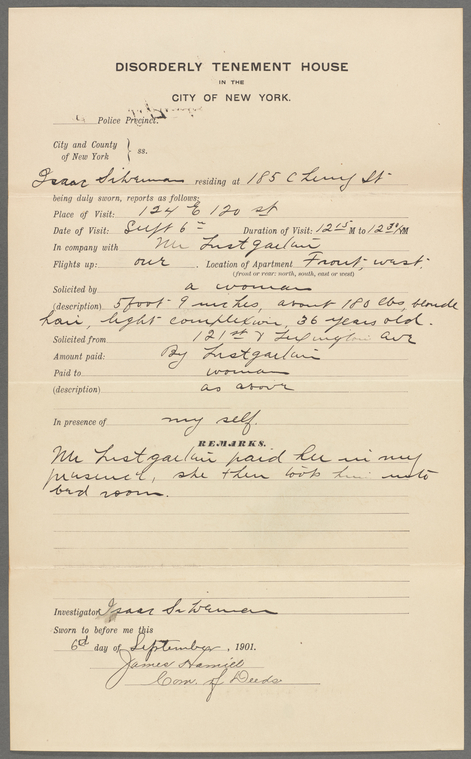 DISORDERLY TENEMENT HOUSE
IN THE
CITY OF NEW YORK.
Police Precinct.
City and County
of New York } ss.
Isaac Silverman residing at 185 Cherry St
being duly sworn, reports as follows:
Place of Visit: 124 E 120 st
Date of Visit: Sept 6th Duration of Visit: 12 15 M to 12 30 M
In company with Mr Lustgarten
Flights up: one . Location of Apartment Front, west.
(front or rear: north, south, east or west)
Solicited by a woman
(description) 5 foot 9 inches, about 180 lbs, blonde
hair, light complexion, 36 years old.
Solicited from 121st & Lexington Ave
Amount paid: By Lustgarten
Paid to woman
(description) as above
In presence of my self.
REMARKS.
Mr Lustgarten paid her in my
presence, she then took him into
bed room.
Investigator Isaac Silverman
Sworn to before me this
6d day of September , 1901.
James Hamill
Com. of Deeds